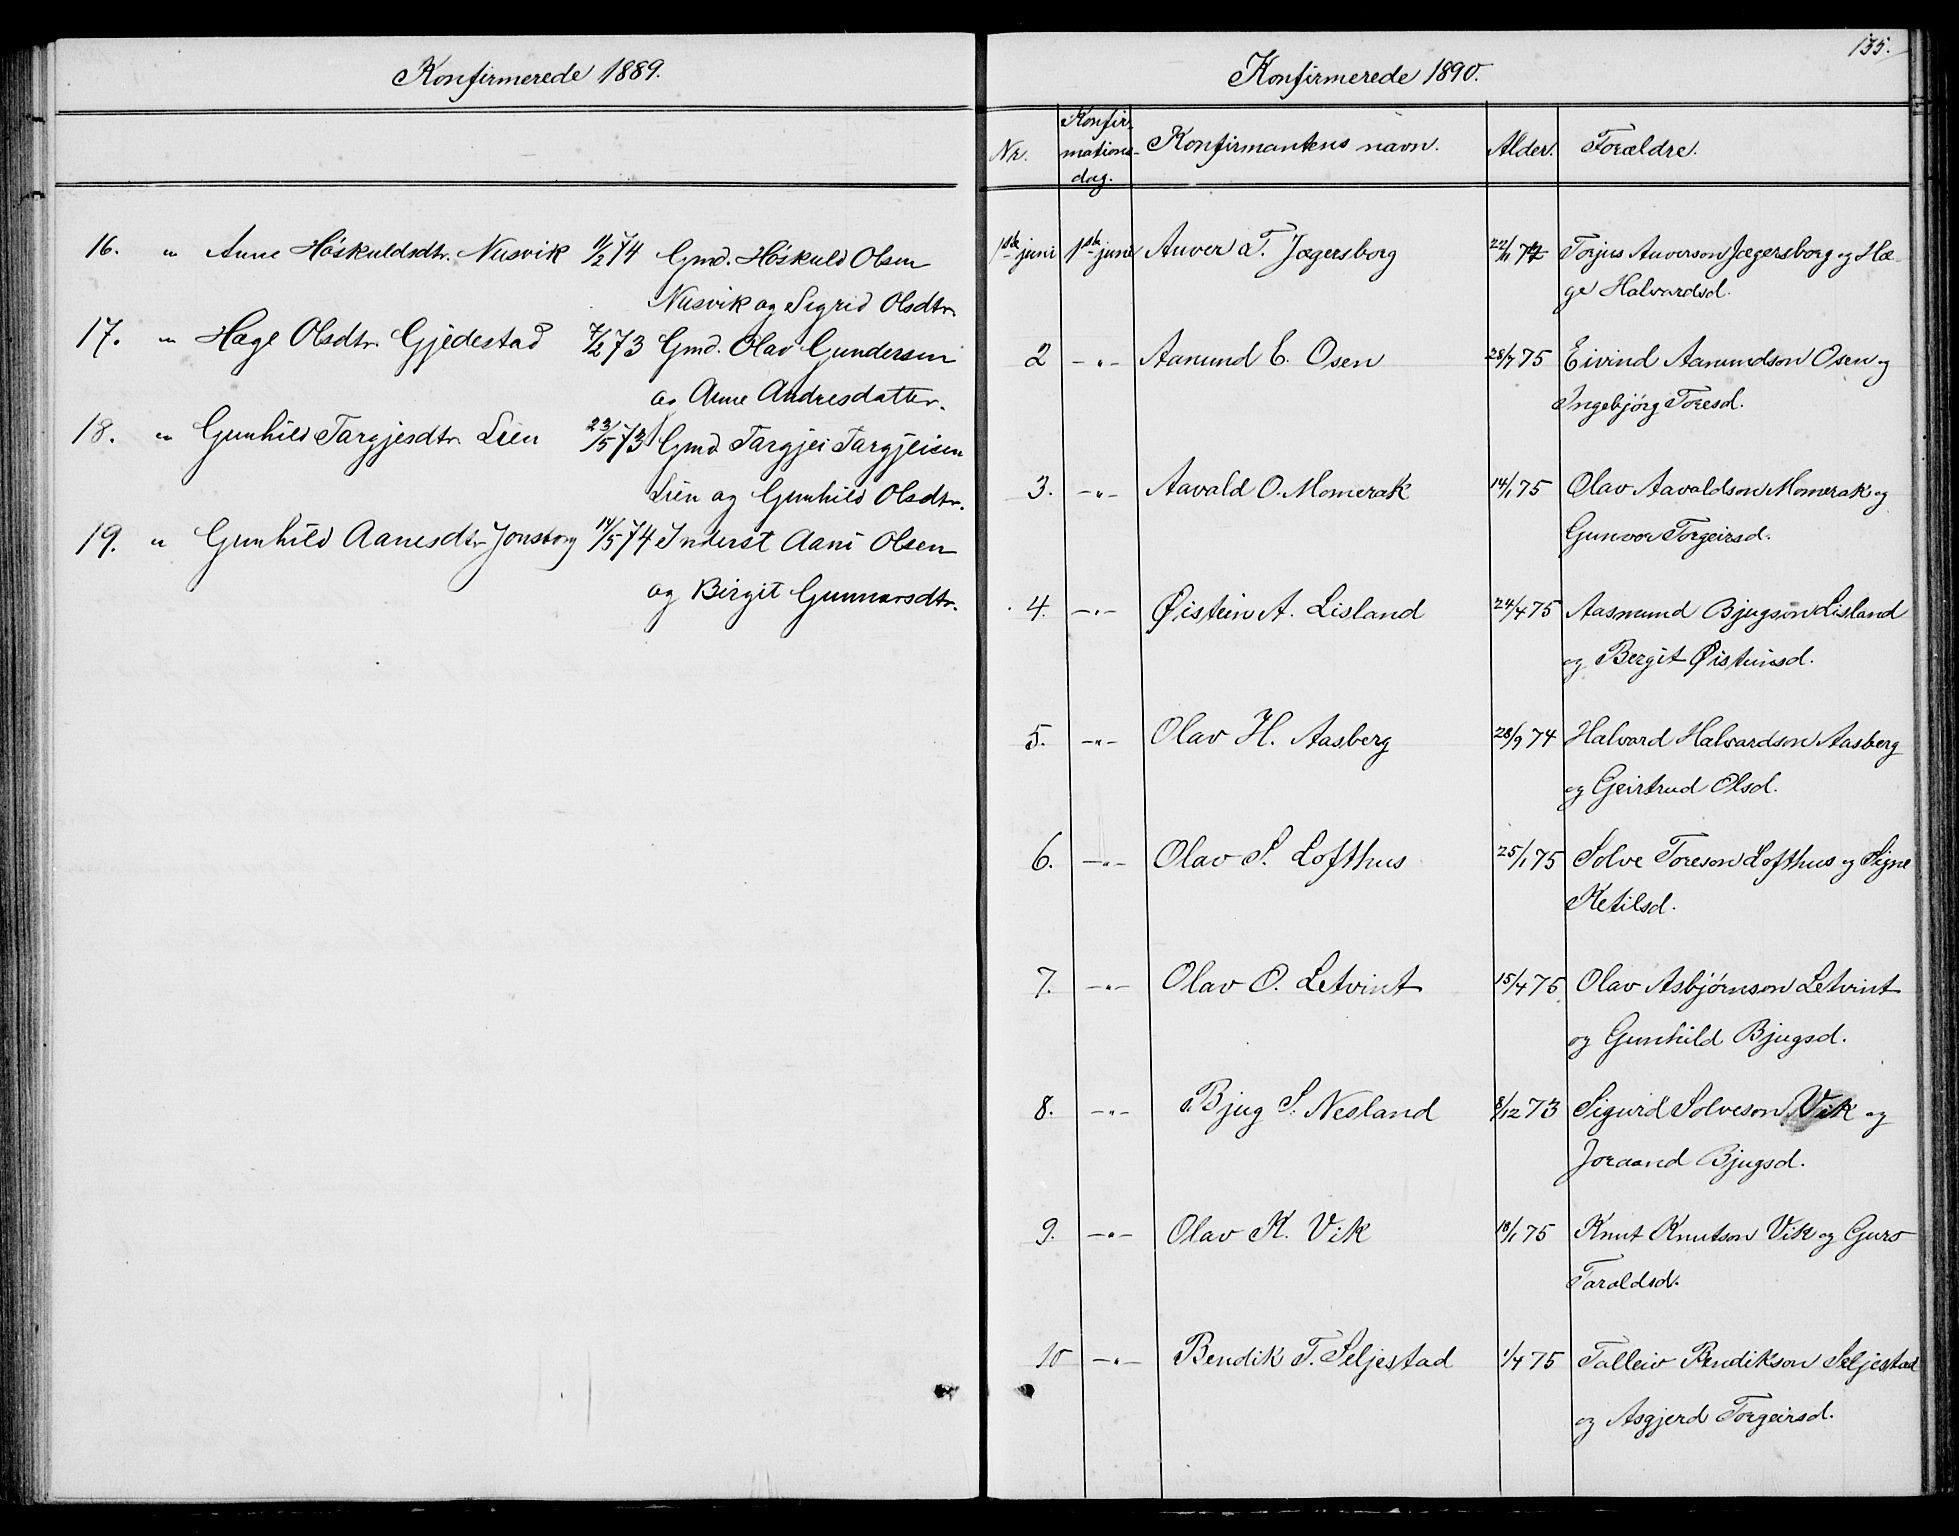 Konfirmerede 1889.
16. " Anne Høskuldsdtr. Nusvik 11/2 74 Gmd. Høskuld Olsen
Nusvik og Sigrid Olsdtr.
17. " Hæge Olsdtr. Gjedestad 7/2 73 Gmd. Olav Gundersen
og Anne Andresdatter.
18. " Gunhild Targjesdtr. Lien 23/5 73 Gmd Targjei Targjeisen
Lien og Gunhild Olsdtr.
19. " Gunhild Aanesdtr Jonsborg 14/5 74 Inderst Aani Olsen
og Birgit Gunnarsdtr.
135.
Konfirmerede 1890.
Nr. Konfir-
mations-
dag. Konfirmantens navn. Alder. Forældre.
1ste juni 1ste juni Anver T. Jægersborg 22/1 74 Torjus Anverson Jægersborg og Hæ-
ge Halvardsd.
2 -"- Aamund E. Osen 28/7 75 Eivind Aamundson Osen og
Ingebjörg Toresd.
3. -"- Aavald O. Momrak 14/1 75 Olav Aavaldson Momrak og
Gunvor Torgeirsd.
4. -"- Øistein A. Lisland 24/4 75 Aasmund Bjugson Lisland
og Bergit Øisteinsd.
5. -"- Olav H. Aasberg 28/9 74 Halvard Halvardson Aasberg
og Geirtrud Olsd.
6. -"- Olav S. Lofthus 25/1 75 Solve Toreson Lofthus og Signe
Ketilsd.
7. -"- Olav O. Letvint 15/4 75 Olav Asbjørnson Letvint
og Gunhild Bjugsd.
8. -"- Bjug S. Nesland 8/12 73 Sigurd Solveson Vik og
Joraand Bjugsd.
9. -"- Olav K. Vik 18/1 75 Knut Knutson Vik og Guro
Taraldsd.
10 -"- Bendik T. Seljestad 1/4 75 Talleiv Bendikson Seljestad
og Asgjerd Torgeirsd.